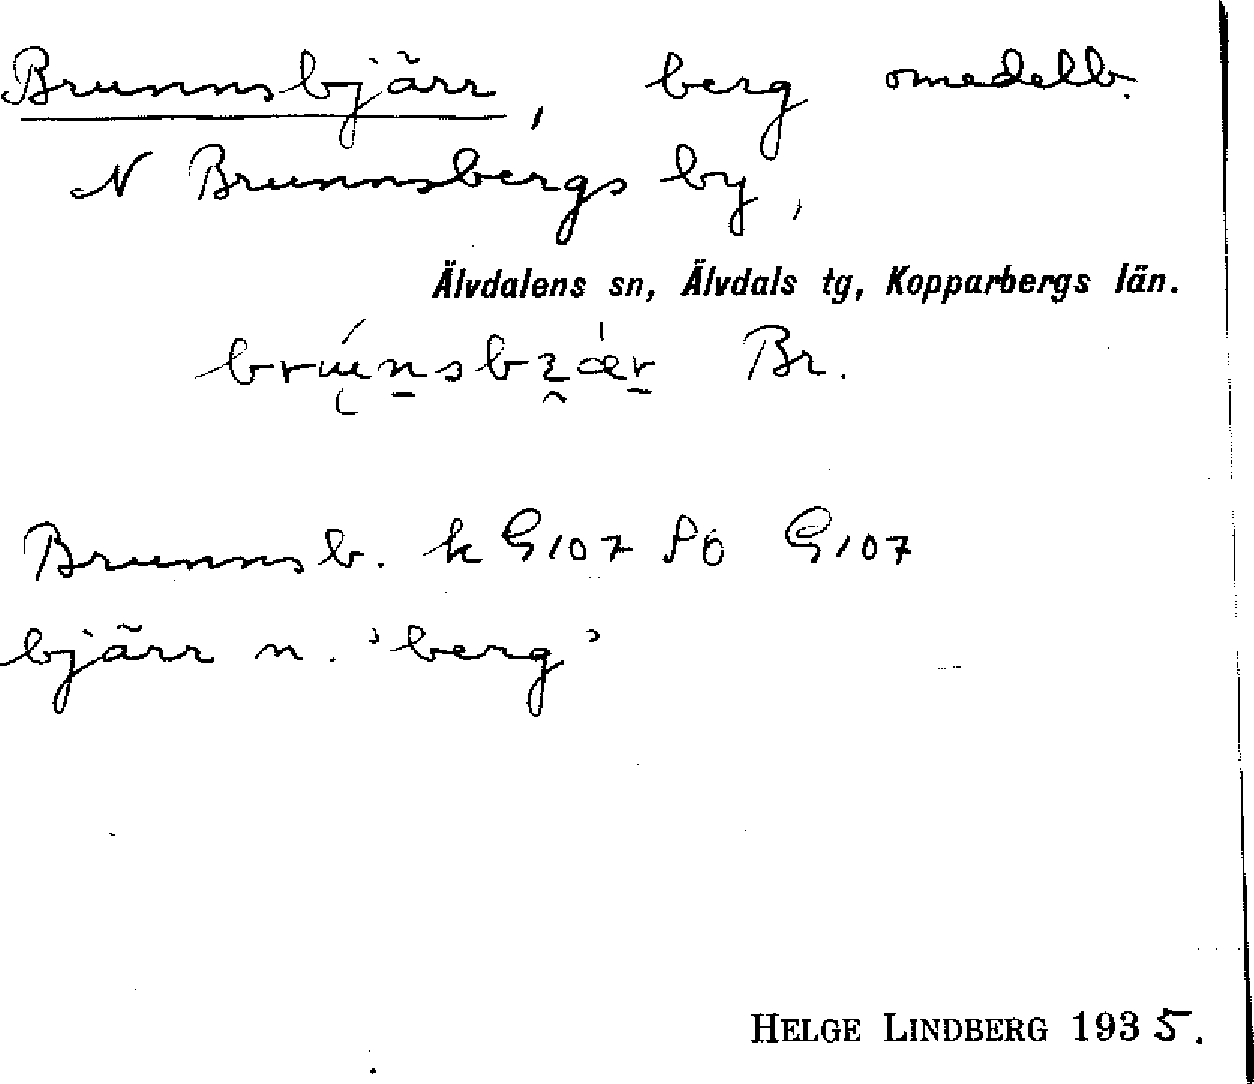 Brunnsbjärr, berg omedelb.
N Brunnsbergs by,
Älvdalens sn, Älvdals tg, Kopparbergs län.
Br.
Brunnsb. k G107 SÖ G107
bjärr n. 'berg'
HELGE LINDBERG 1935.